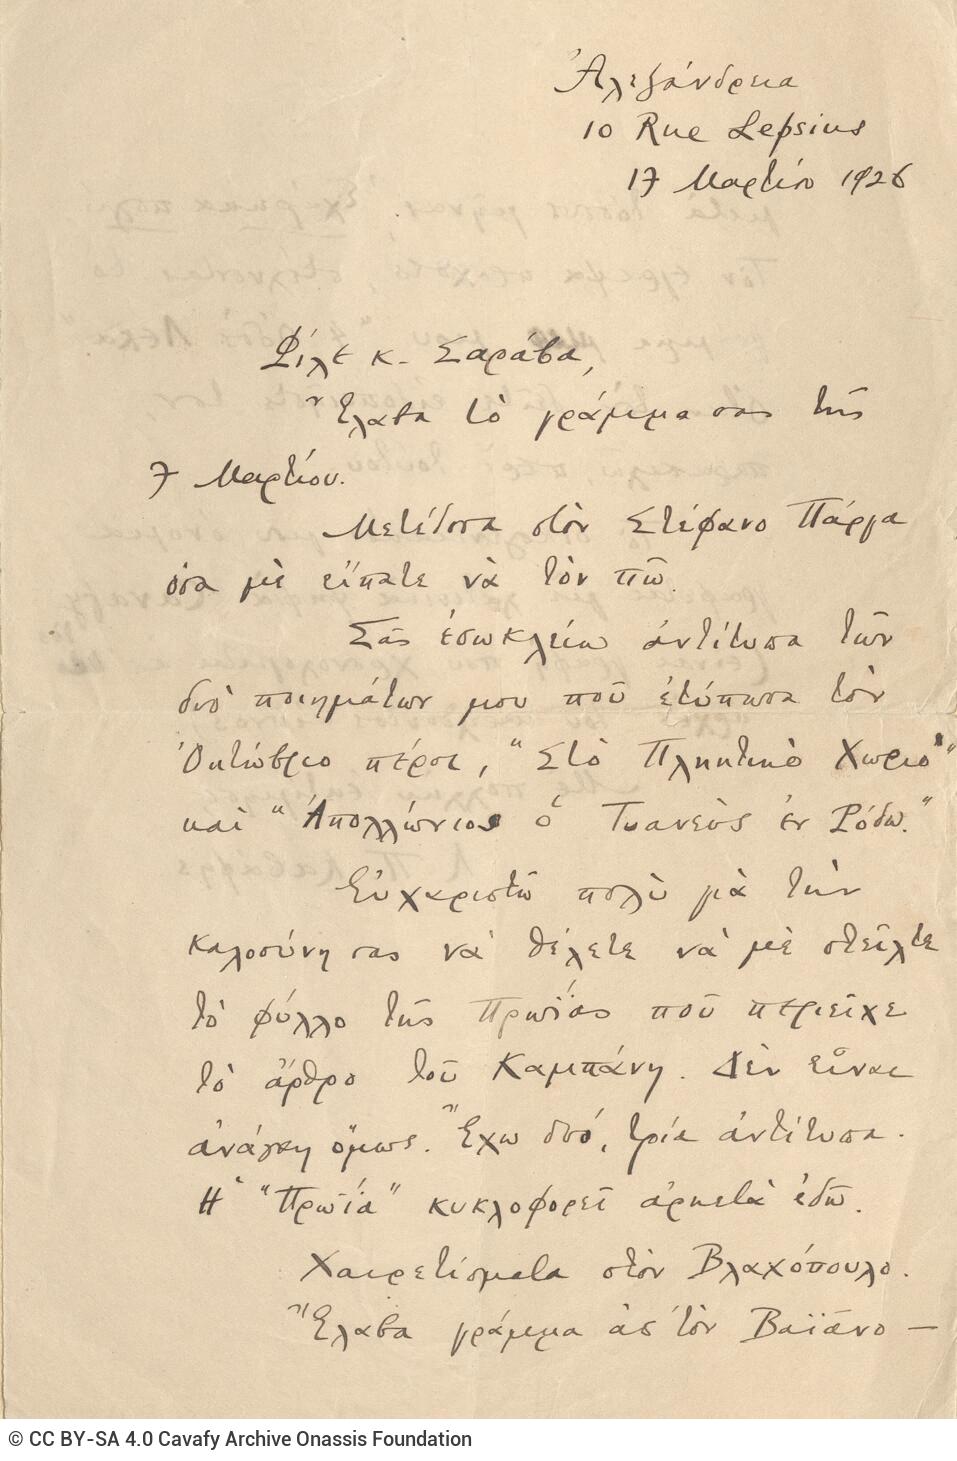 Ἀλεξάνδρεια
10 Rue Lepsius
17 Μαρτίου 1926
Φίλε κ. Σαράβα,
Ἔλαβα τὸ γράμμα σας τῆς
7 Μαρτίου.
Μετέδοσα στὸν Στέφανο Πάργα
ὅσα μὲ εἴπατε νὰ τὸν πῶ.
Σᾶς ἐσωκλείω ἀντίτυπα τῶν
δυὸ ποιημάτων μου ποῦ ἐτύπωσα τὸν
Ὀκτώβριο πέρσι, "Στὸ Πληκτικὸ Χωριὸ"
καὶ "Ἀπολλώνιος ὁ Τυανεὺς ἐν Ρόδῳ."
Εὐχαριστῶ πολὺ γιὰ τὴν
καλοσύνη σας νὰ θέλετε νὰ μὲ στεῖλτε
τὸ φύλλο τῆς Πρωΐας ποῦ περιεῖχε
τὸ ἄρθρο τοῦ Καμπάνη. Δὲν εἶναι
ἀνάγκη ὅμως. Ἔχω δυό, τρία ἀντίτυπα.
Ἡ "Πρωΐα" κυκλοφορεῖ ἀρκετὰ ἐδῶ.
Χαιρετίσματα στὸν Βλαχόπουλο.
Ἔλαβα γράμμα ἀπ' τὸν Βαϊάνο —
© CC BY-SA 4.0 Cavafy Archive Onassis Foundation